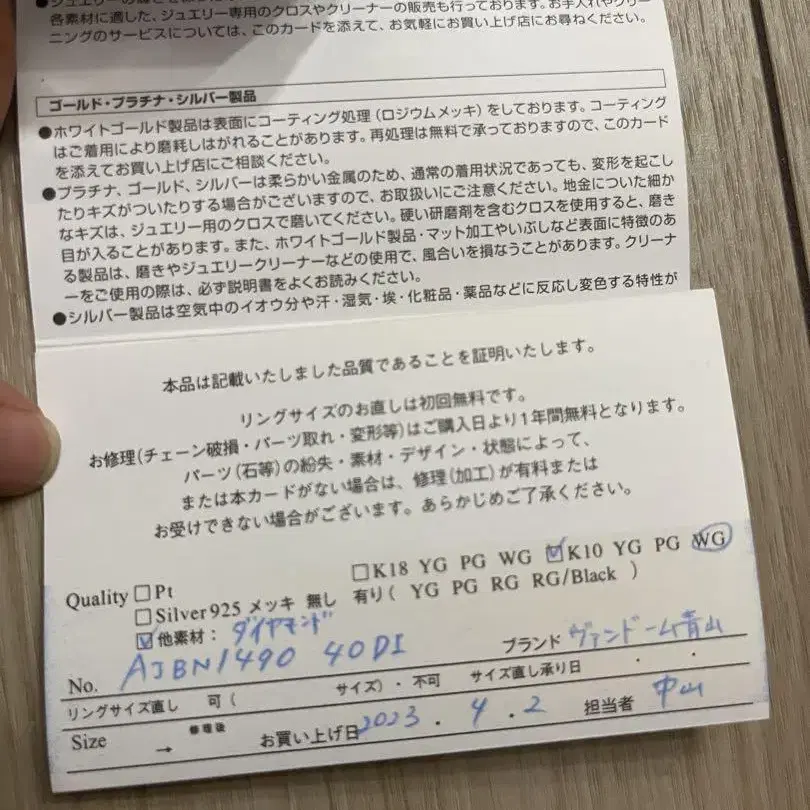 各素材に適した、ジュエリー専用のクロスやクリーナーの販売も行っております。お手入れやクリー
ニングのサービスについては、このカードを添えて、お気軽にお買い上げ店にお尋ねください。
ゴールド・プラチナ・シルバー製品
●ホワイトゴールド製品は表面にコーティング処理（ロジウムメッキ）をしております。コーティング
はご着用により磨耗しはがれることがあります。再処理は無料で承っておりますので、このカード
を添えてお買い上げ店にご相談ください。
●プラチナ、ゴールド、シルバーは柔らかい金属のため、通常の着用状況であっても、変形を起こし
たりキズがついたりする場合がございますので、お取扱いにご注意ください。地金についた細か
なキズは、ジュエリー用のクロスで磨いてください。硬い研磨剤を含むクロスを使用すると、磨き
目が入ることがあります。また、ホワイトゴールド製品・マット加工やいぶしなど表面に特徴のあ
る製品は、磨きやジュエリークリーナーなどの使用で、風合いを損なうことがあります。クリーナ
ーをご使用の際は、必ず説明書をよくお読みください。
●シルバー製品は空気中のイオウ分や汗・湿気・埃・化粧品・薬品などに反応し変色する特性が
本品は記載いたしました品質であることを証明いたします。
リングサイズのお直しは初回無料です。
お修理(チェーン破損・パーツ取れ・変形等)はご購入日より1年間無料となります。
パーツ(石等)の紛失・素材・デザイン・状態によって、
または本カードがない場合は、修理(加工)が有料または
お受けできない場合がございます。あらかじめご了承ください。
Quality □Pt □K18 YG PG WG ☑K10 YG PG WG
□Silver925 メッキ 無し 有り( YG PG RG RG/Black )
☑他素材： ダイヤモンド
No. AJBN1490 40DI ブランド ヴァンドーム青山
リングサイズ直し 可（ サイズ）・不可 サイズ直し承り日 ・ ・
Size → 修理後 お買い上げ日 2023 . 4 . 2 担当者 中山